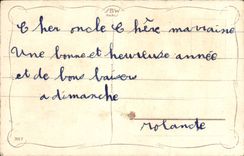 Cher oncle Chère marraine
Une bonne et heureuse année
et de bons baisers
a dimanche
Rolande